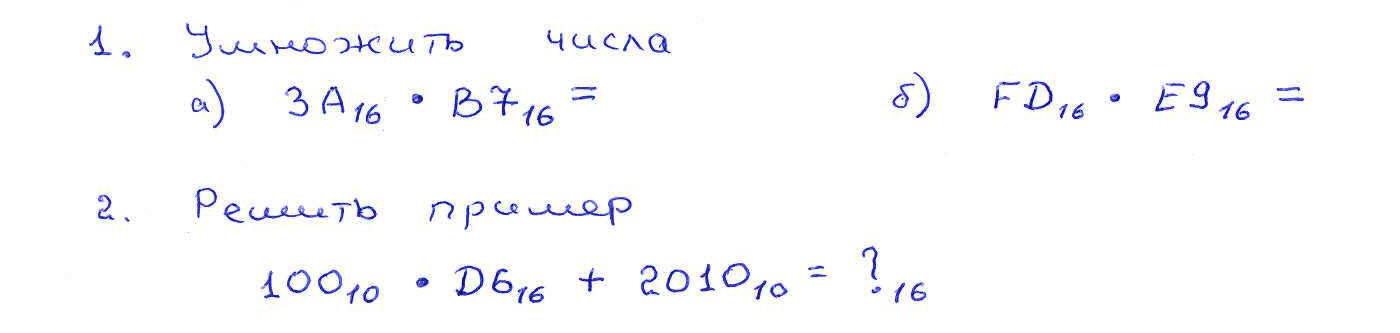 1. Умножить числа
а) 3A₁₆ • B7₁₆ = б) FD₁₆ • E9₁₆ =
2. Решить пример
100₁₀ • D6₁₆ + 2010₁₀ = ?₁₆